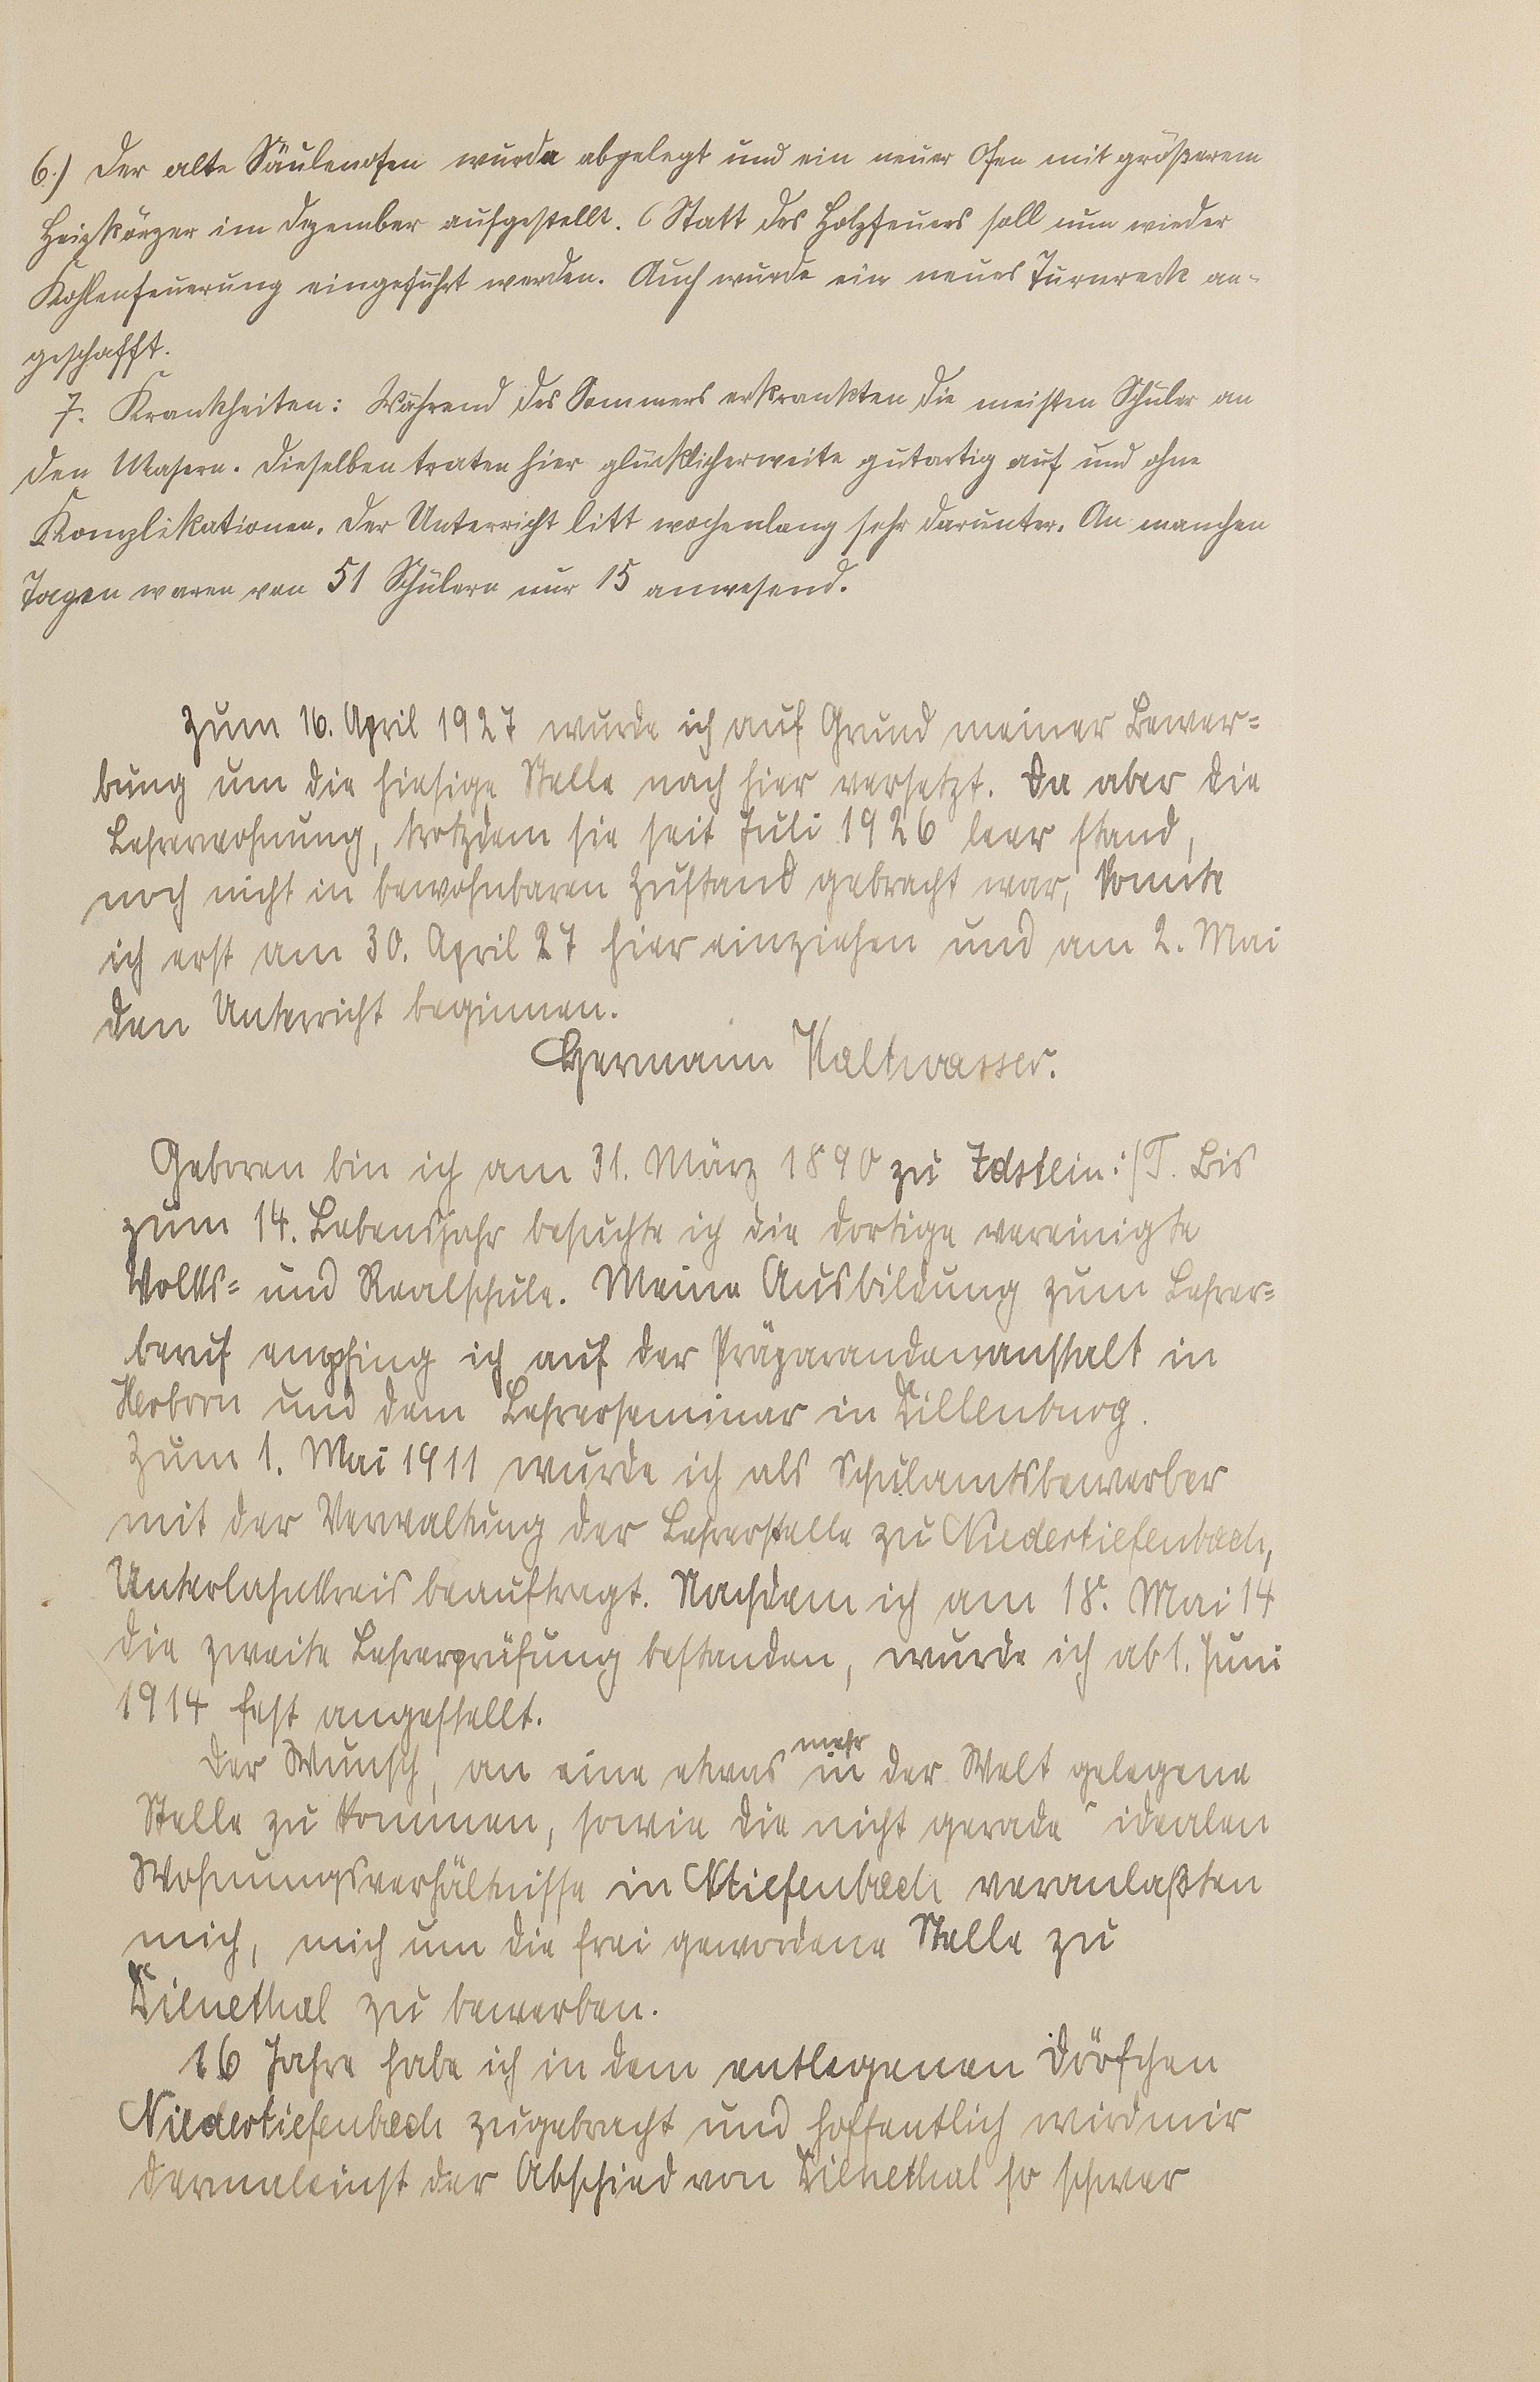 6.) Der alte Säulenofen wurde abgelegt und ein neuer Ofen mit größerem
Heizkörper im Dezember aufgestellt. (Statt des Holzfeuers soll nun wieder
Kohlenfeuerung eingeführt werden. Auch wurde ein neues Turnreck an-
geschafft.
7. Krankheiten: Während des Sommers erkrankten die meisten Schüler an
den Masern. Dieselben traten hier glücklicherweite gutartig auf und ohne
Komplikationen. Der Unterricht litt wochenlang sehr darunter. An manchen
Tagen waren von 51 Schülern nur 15 anwesend.
Zum 16. April 1927 wurde ich auf Grund meiner Bewer=
bung um die hiesige Stelle nach hier versetzt. Da aber die
Lehrerwohnung, trotzdem sie seit Juli 1926 leer stand,
noch nicht in bewohnbaren Zustand gebracht war, konnte
ich erst am 30. April 27 hier einziehen und am 2. Mai
den Unterricht beginnen.
Hermann Kaltwasser.
Geboren bin ich am 31. März 1890 zu Idstein i/T. Bis
zum 14. Lebensjahr besuchte ich die dortige vereinigte
Volks= und Realschule. Meine Ausbildung zum Lehrer=
beruf empfing ich auf der Präparandenanstalt in
Herborn und dem Lehrerseminar in Dillenburg.
Zum 1. Mai 1911 wurde ich als Schulamtsbewerber
mit der Verwaltung der Lehrerstelle zu Niedertiefenbach,
Unterlahnkreis beauftragt. Nachdem ich am 18. Mai 14
die zweite Lehrerprüfung bestanden, wurde ich ab 1. Juni
1914 fest angestellt.
Der Wunsch, an eine etwas mehr in der Welt gelegene
Stelle zu kommen, sowie die nicht gerade idealen
Wohnungsverhältnisse in Ntiefenbach veranlaßten
mich, mich um die frei gewordene Stelle zu
Dienethal zu bewerben.
16 Jahre habe ich in dem entlegenen Dörfchen
Niedertiefenbach zugebracht und hoffentlich wird mir
dermaleinst der Abschied von Dienethal so schwer